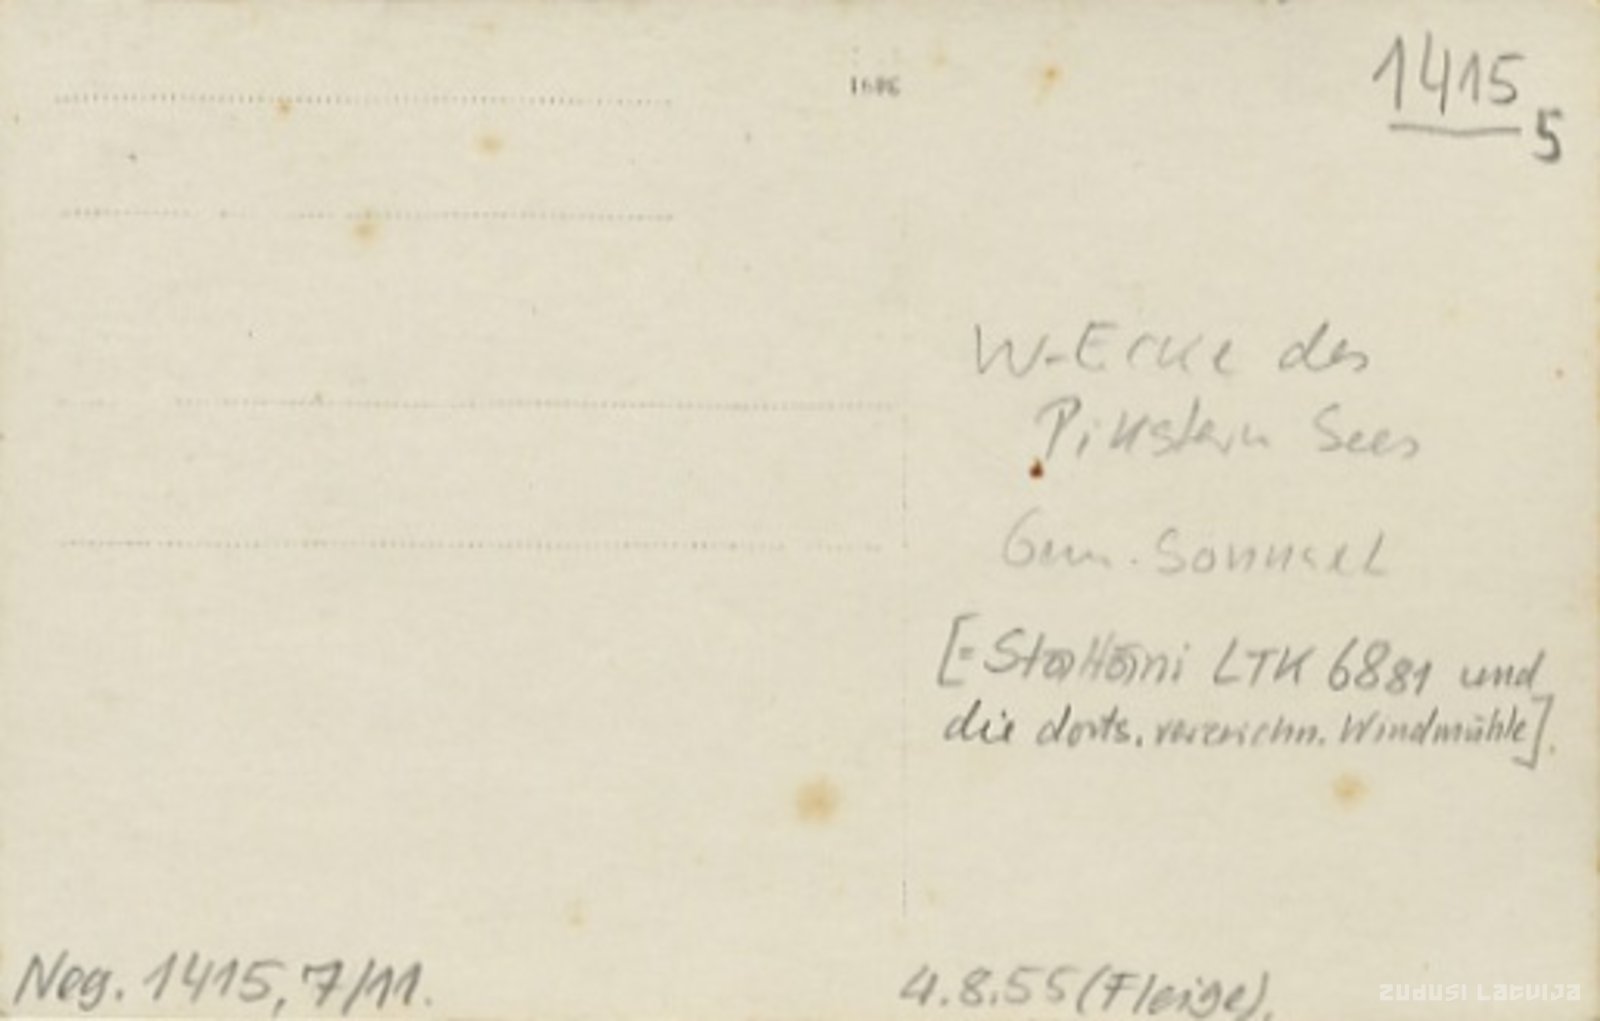 1415
5
W-Ecke des
Pikstern Sees
Gem. Sonnaxt
[= LTK 6881 und
die dorts. verzeichn. Windmühle].
Neg. 1415, 7/11.
4.8.55 (Fleige).
ZUDUSI LATVIJA